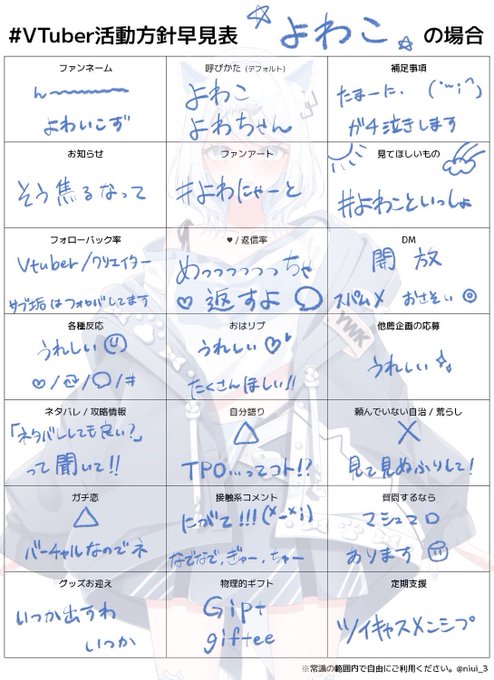 #VTuber活動方針早見表 よわこ の場合
ファンネーム
ん〜〜〜〜
よわいこず
呼びかた (デフォルト)
よわこ
よわちゃん
補足事項
たまーに、
ガチ泣きします
お知らせ
そう焦るなって
ファンアート
#よわにゃーと
見てほしいもの
#よわこといっしょ
フォローバック率
Vtuber/クリエイター
サブ垢はフォロバしてます
♥ / 返信率
めっつっっっっちゃ
♡ 返すよ
DM
開放
スパム✕ おさそい◎
各種反応
うれしい
♡/ / /#
おはリプ
うれしい♡
たくさんほしい!!
他薦企画の応募
うれしい
ネタバレ / 攻略情報
「ネタバレしても良い?」
って聞いて!!
自分語り
△
TPO...ってコト!?
頼んでいない自治 / 荒らし
✕
見て見ぬふりして!
ガチ恋
△
バーチャルなのでネ
接触系コメント
にがて!!!(×_×;)
なでなで,ぎゅー,ちゅー
質問するなら
マシュマロ
あります
グッズお迎え
いつか出すわ
いつか
物理的ギフト
Gipt
giftee
定期支援
ツイキャスメンシプ
※常識の範囲内で自由にご利用ください。@niui_3